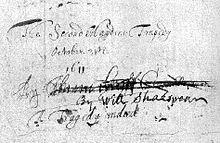 The Second Maydens Tragedy
October 31
1611
By
By Will Shakspear
A Tragedy indeed